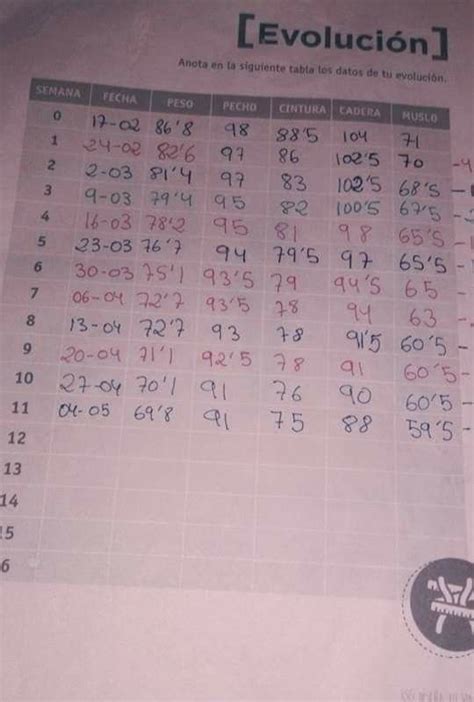 [Evolución]
Anota en la siguiente tabla los datos de tu evolución.
SEMANA FECHA PESO PECHO CINTURA CADERA MUSLO
0 17-02 86'8 98 88'5 104 71
1 24-02 82'6 97 86 102'5 70
2 2-03 81'4 97 83 102'5 68'5
3 9-03 79'4 95 82 100'5 67'5
4 16-03 78'2 95 81 98 65'5
5 23-03 76'7 94 79'5 97 65'5
6 30-03 75'1 93'5 79 94'5 65
7 06-04 72'7 93'5 78 94 63
8 13-04 72'7 93 78 91'5 60'5
9 20-04 71'1 92'5 78 91 60'5
10 27-04 70'1 91 76 90 60'5
11 04-05 69'8 91 75 88 59'5
12
13
14
15
6